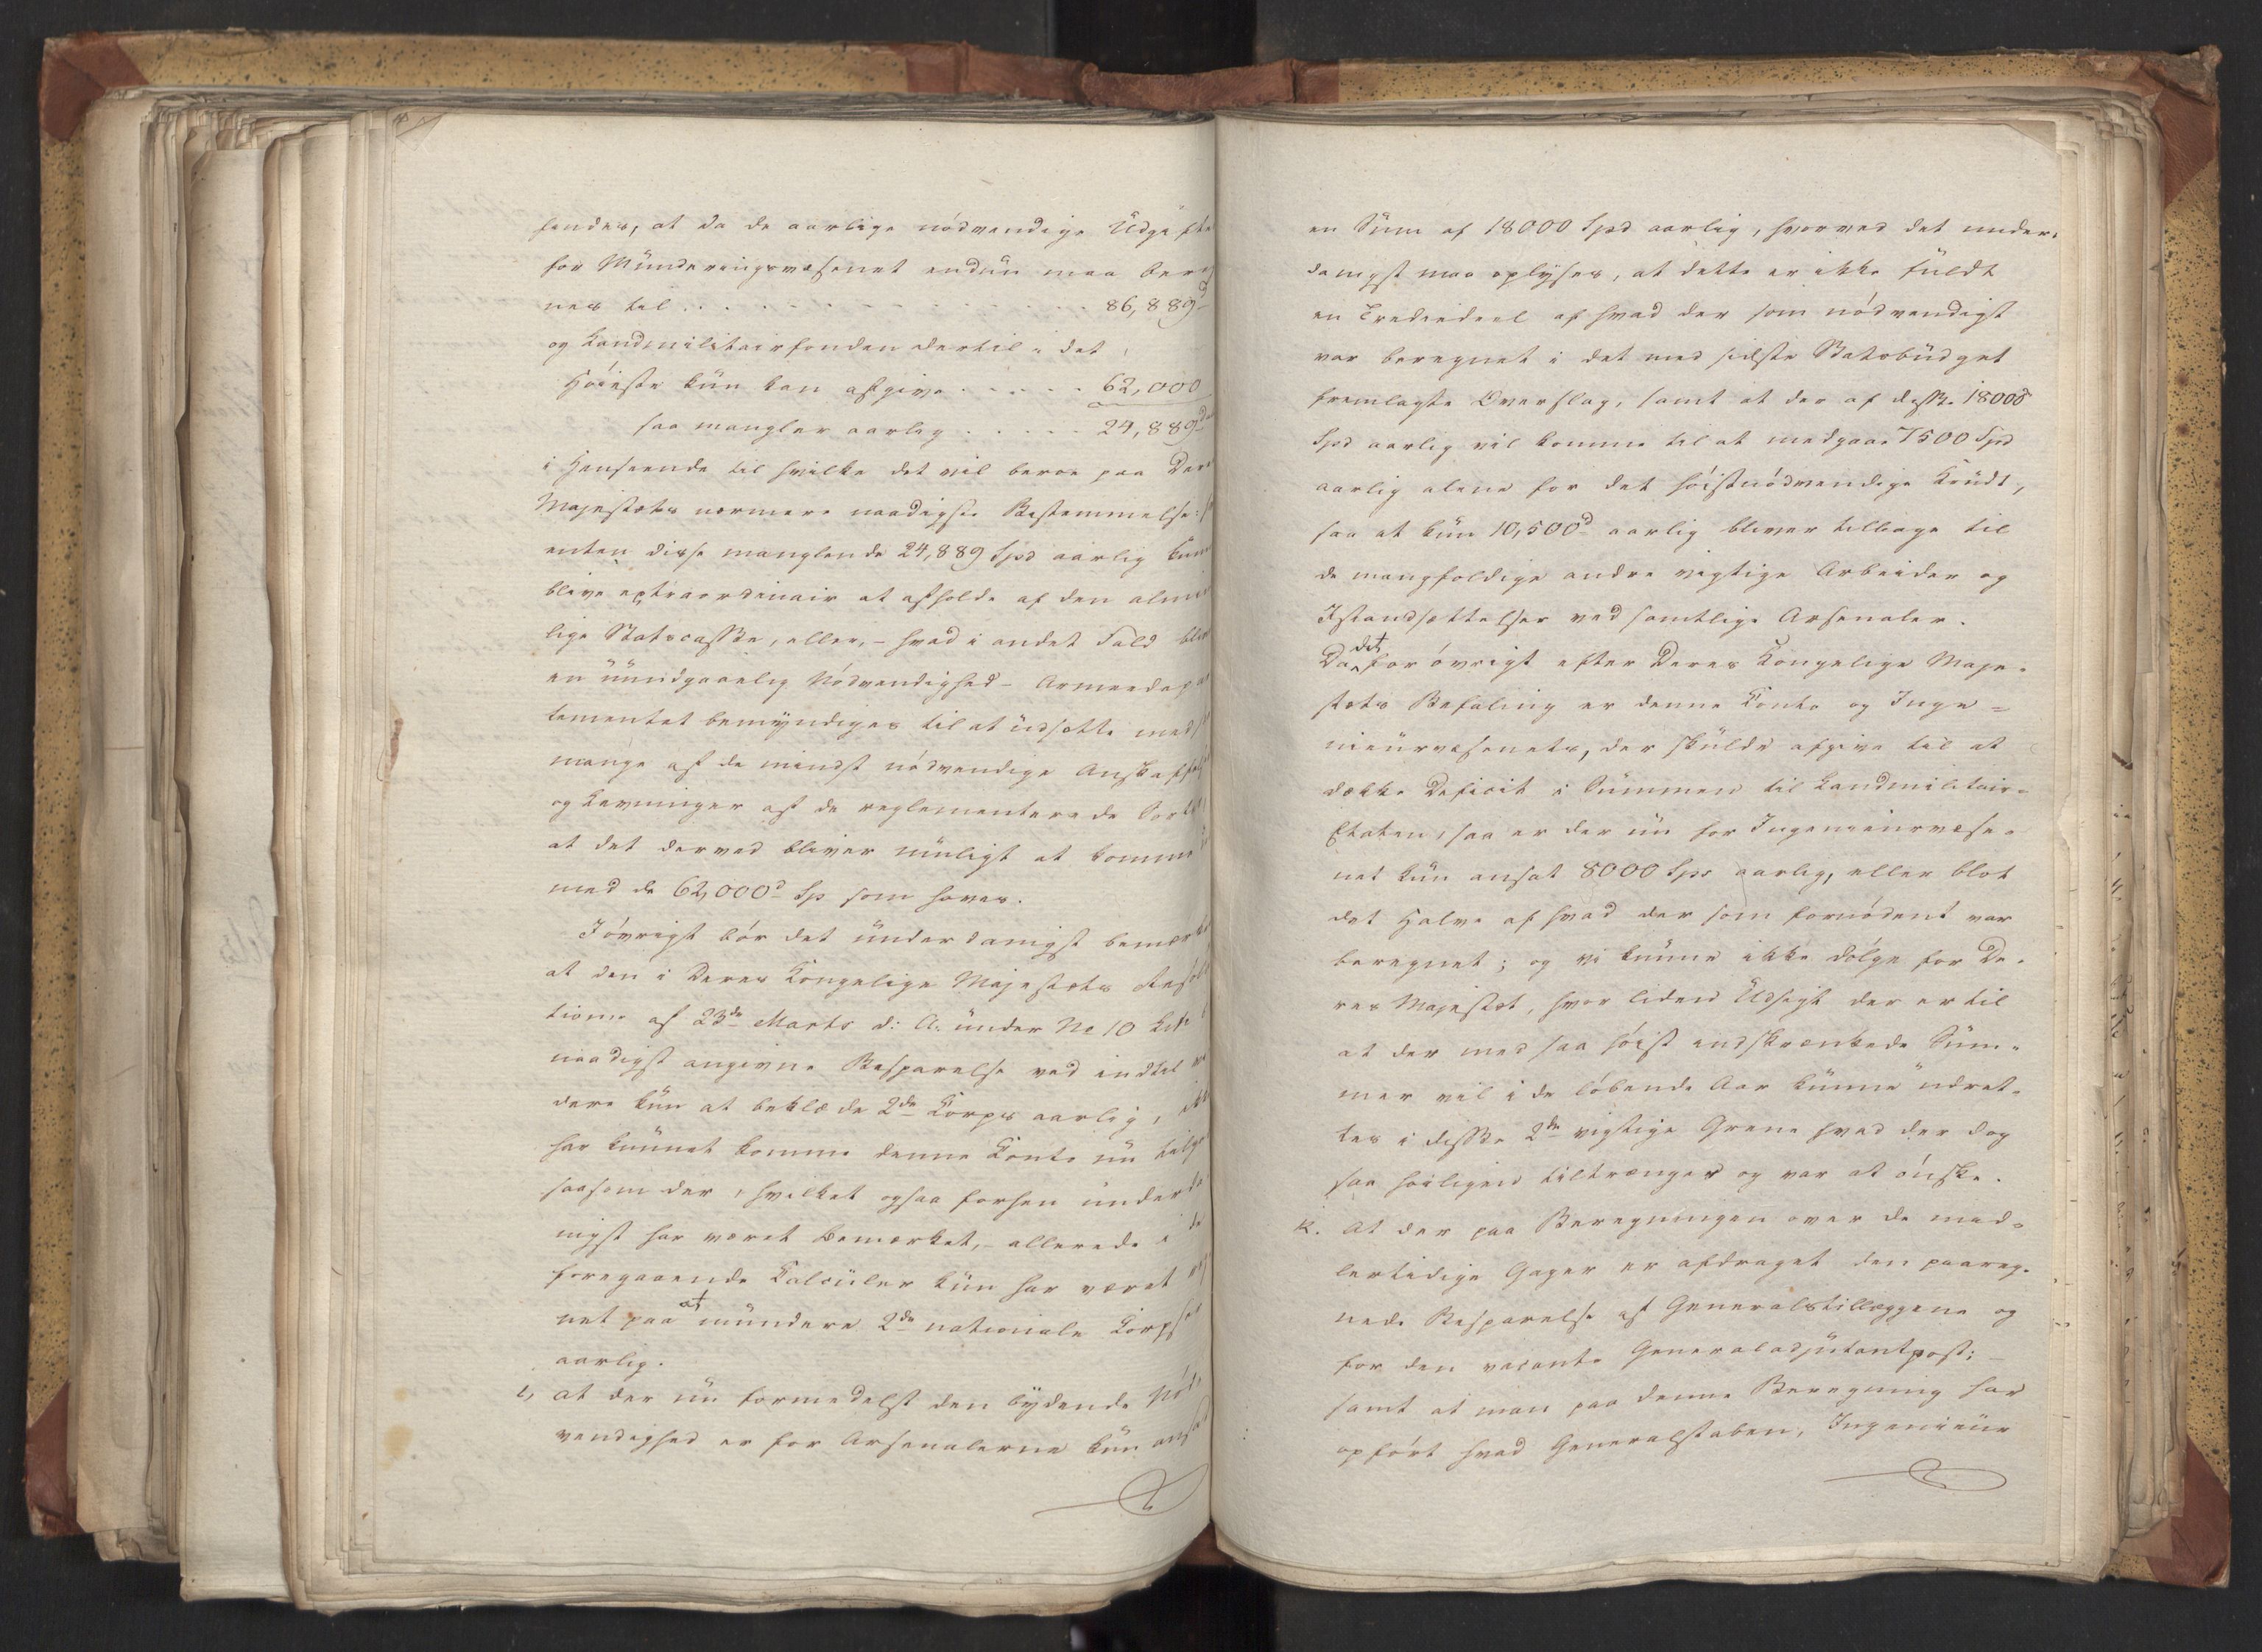 sendes, at da de aarlige nödvendige Udgifte
for Munderingsvæsenet endnu maa bereg
nes til . . . . . . . . . . 86,889d
og Landmilitairfonden dertil i det
Höieste kun kan afgive . . . . . 62,000
saa mangler aarlig . . . . . 24,889d
i Henseende til hvilke det vil beroe paa Der
Majestæts nærmere naadigste Bestemmelse:
enten disse manglende 24,889 Spd aarlig kun
blive extraordinair at afholde af den almin
lige Statscasse, eller, – hvad i andet Fald bliv
en uundgaaelig Nödvendighed – Armeedepar
tementet bemyndiges til at udsætte med
mange af de mindst nödvendige Anskaffel
og Levninger af de reglementerede Sort
at det derved bliver muligt at komme
med de 62,000d Sp som haves.
Iövrigt bör det underdanigst bemærk
at den i Deres Kongelige Majestæts Resol
tion af 23de Marts d: A. under No 10 Litr
naadigst angivne Besparelse ved indtil
dere kun at beklæde 2de Corps aarlig, ikk
har kunnet komme denne Conto nu tilgo
saasom der, hvilket ogsaa forhen underda
nigst har været bemærket, – allerede i de
foregaaende Calculer kun har været reg
net paa at mundere 2de nationale Corps
aarlig.
i, at der nu formedelst den bydende Nöd
vendighed er for Arsenalerne kun ansat
en Sum af 18000 Spd aarlig, hvorved det under-
danigst maa oplyses, at dette er ikke fuldt
en Trediedeel af hvad der som nödvendigst
var beregnet i det med sidste Statsbudget
fremlagte Overslag, samt at der af disse 18000
Spd aarlig vil komme til at medgaae 7500 Spd
aarlig alene for det höistnödvendige Krudt,
saa at kun 10,500d aarlig bliver tilbage til
de mangfoldige andre vigtige Arbeider og
Istandsættelser ved samtlige Arsenaler.
Da det forövrigt efter Deres Kongelige Maje-
stæts Befaling er denne Conto og Inge-
nieurvæsenets, der skulde afgive til at
dække Deficit i Summen til Landmilitair-
Etaten, saa er der nu for Ingenieurvæse-
net kun ansat 8000 Spd aarlig, eller blot
det Halve af hvad der som fornödent var
beregnet; og vi kunne ikke dölge for De-
res Majestæt, hvor liden Udsigt der er til
at der med saa höist indskrænkede Sum-
mer vil i de löbende Aar kunne udret-
tes i disse 2de vigtige Grene hvad der dog
saa höiligen tiltrænges og var at önske.
k. At der paa Beregningen over de med-
lertidige Gager er afdraget den paareg-
nede Besparelse af Generalstillæggene og
for den vacante Generaladjutantpost;
samt at man paa denne Beregning har
opfört hvad Generalstaben, Ingenieur